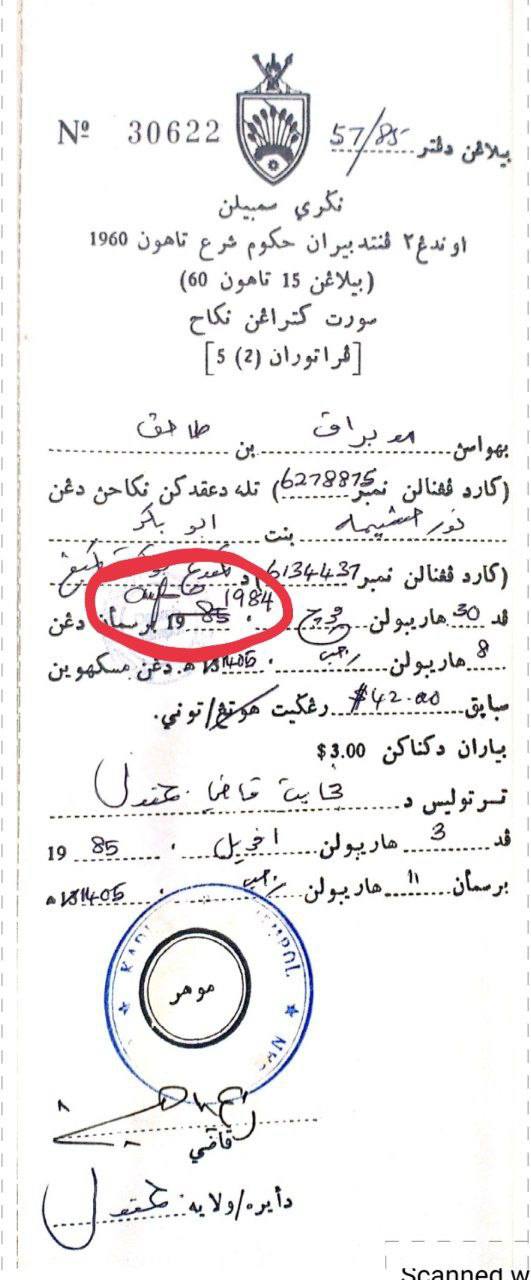 Nº 30622
بيلاڠن دفتر 57/85
نݢري سمبيلن
اوندڠ٢ ڤنتدبيران حكوم شرع تاهون 1960
(بيلاڠن 15 تاهون 60)
سورت كتراڠن نكاح
[ڤراتوران (2) 5]
بهواسن مبراق بن
(كارد ڤڠنالن نمبر 6278875) تله دعقدكن نكاحن دڠن
بنت ابو بكر
(كارد ڤڠنالن نمبر 6134437) د
1984
ڤد 30 هاريبولن مچ 1985 برسمأن دڠن
8 هاريبولن رجب 1405 ه. دڠن مسكهوين
سباݢي $42.00 رڠݢيت هوتڠ/توني.
بياران دكناكن $3.00
ترتوليس د قاضي جمڤول
ڤد 3 هاريبولن اڤريل 1985
برسمأن 11 هاريبولن رجب 1405 ه
KADI JEMPOL
موهر
قاضي
دأيره/ولايه: جمڤول
Scanned w